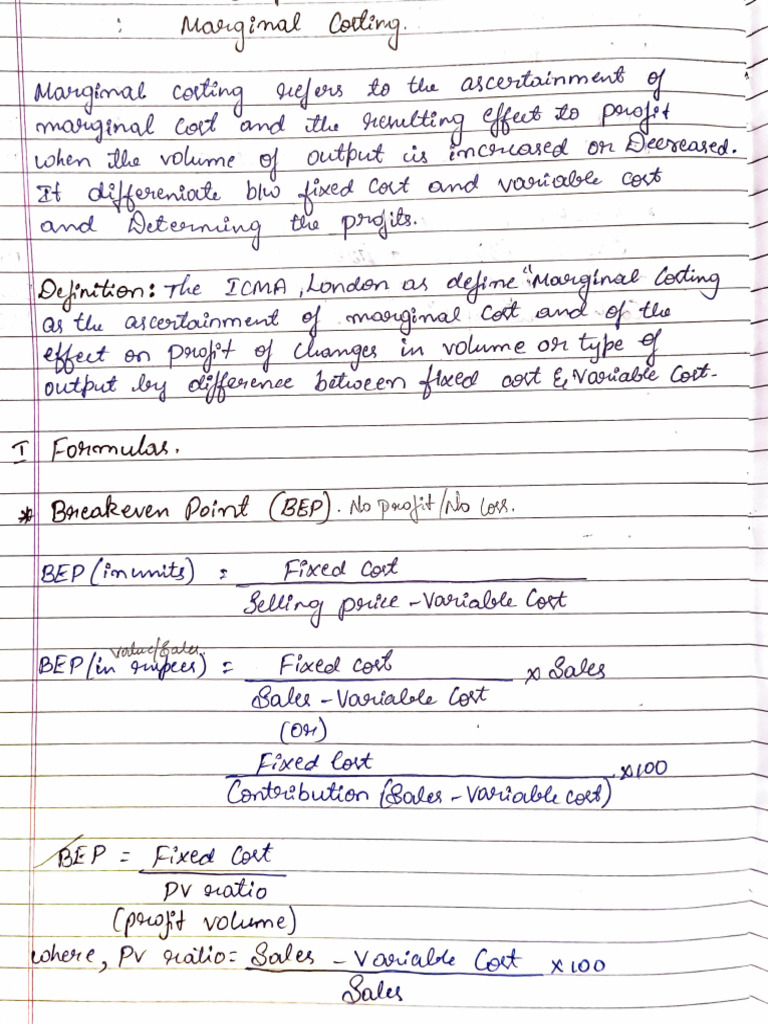 : Marginal Costing.
Marginal costing refers to the ascertainment of
marginal cost and the resulting effect to profit
when the volume of output is increased or Decreased.
It differeniate b/w fixed cost and variable cost
and Determing the profits.
Definition: The ICMA, London as define "Marginal Costing
as the ascertainment of marginal cost and of the
effect on profit of changes in volume or type of
output by difference between fixed cost & variable cost.
I Formulas.
* Breakeven Point (BEP). No profit/No loss.
BEP (in units) = Fixed Cost
Selling price - Variable Cost
value/Sales
BEP (in rupees) = Fixed cost x Sales
Sales - Variable Cost
(or)
Fixed Cost x100
Contribution (Sales - Variable cost)
BEP = Fixed Cost
PV ratio
(profit volume)
where, PV ratio = Sales - Variable Cost x100
Sales